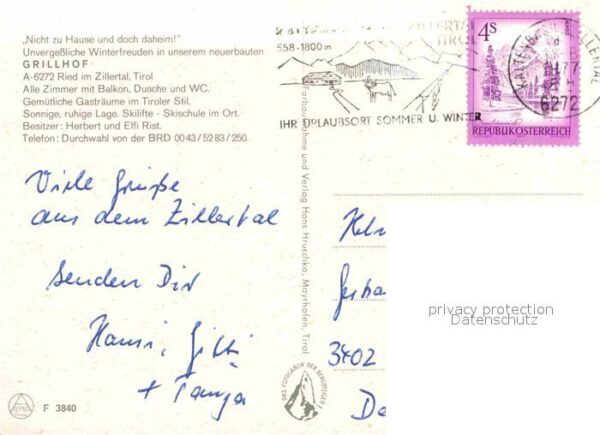 „Nicht zu Hause und doch daheim!"
Unvergeßliche Winterfreuden in unserem neuerbauten
GRILLHOF
A-6272 Ried im Zillertal, Tirol
Alle Zimmer mit Balkon, Dusche und WC.
Gemütliche Gasträume im Tiroler Stil.
Sonnige, ruhige Lage. Skilifte - Skischule im Ort.
Besitzer: Herbert und Elfi Rist.
Telefon: Durchwahl von der BRD 0043/5283/250
Viele Grüße
aus dem Zillertal
senden Dir
Hansi, Gitti
+ Tanja
F 3840
Farbaufnahme und Verlag Hans Hruschka, Mayrhofen, Tirol
DAS FOTOLABOR DER BERGSTEIGER
ZILLERTAL
TIROL
558-1800 m
IHR URLAUBSORT SOMMER U. WINTER
4S
REPUBLIK ÖSTERREICH
77
6272
3402
privacy protection
Datenschutz